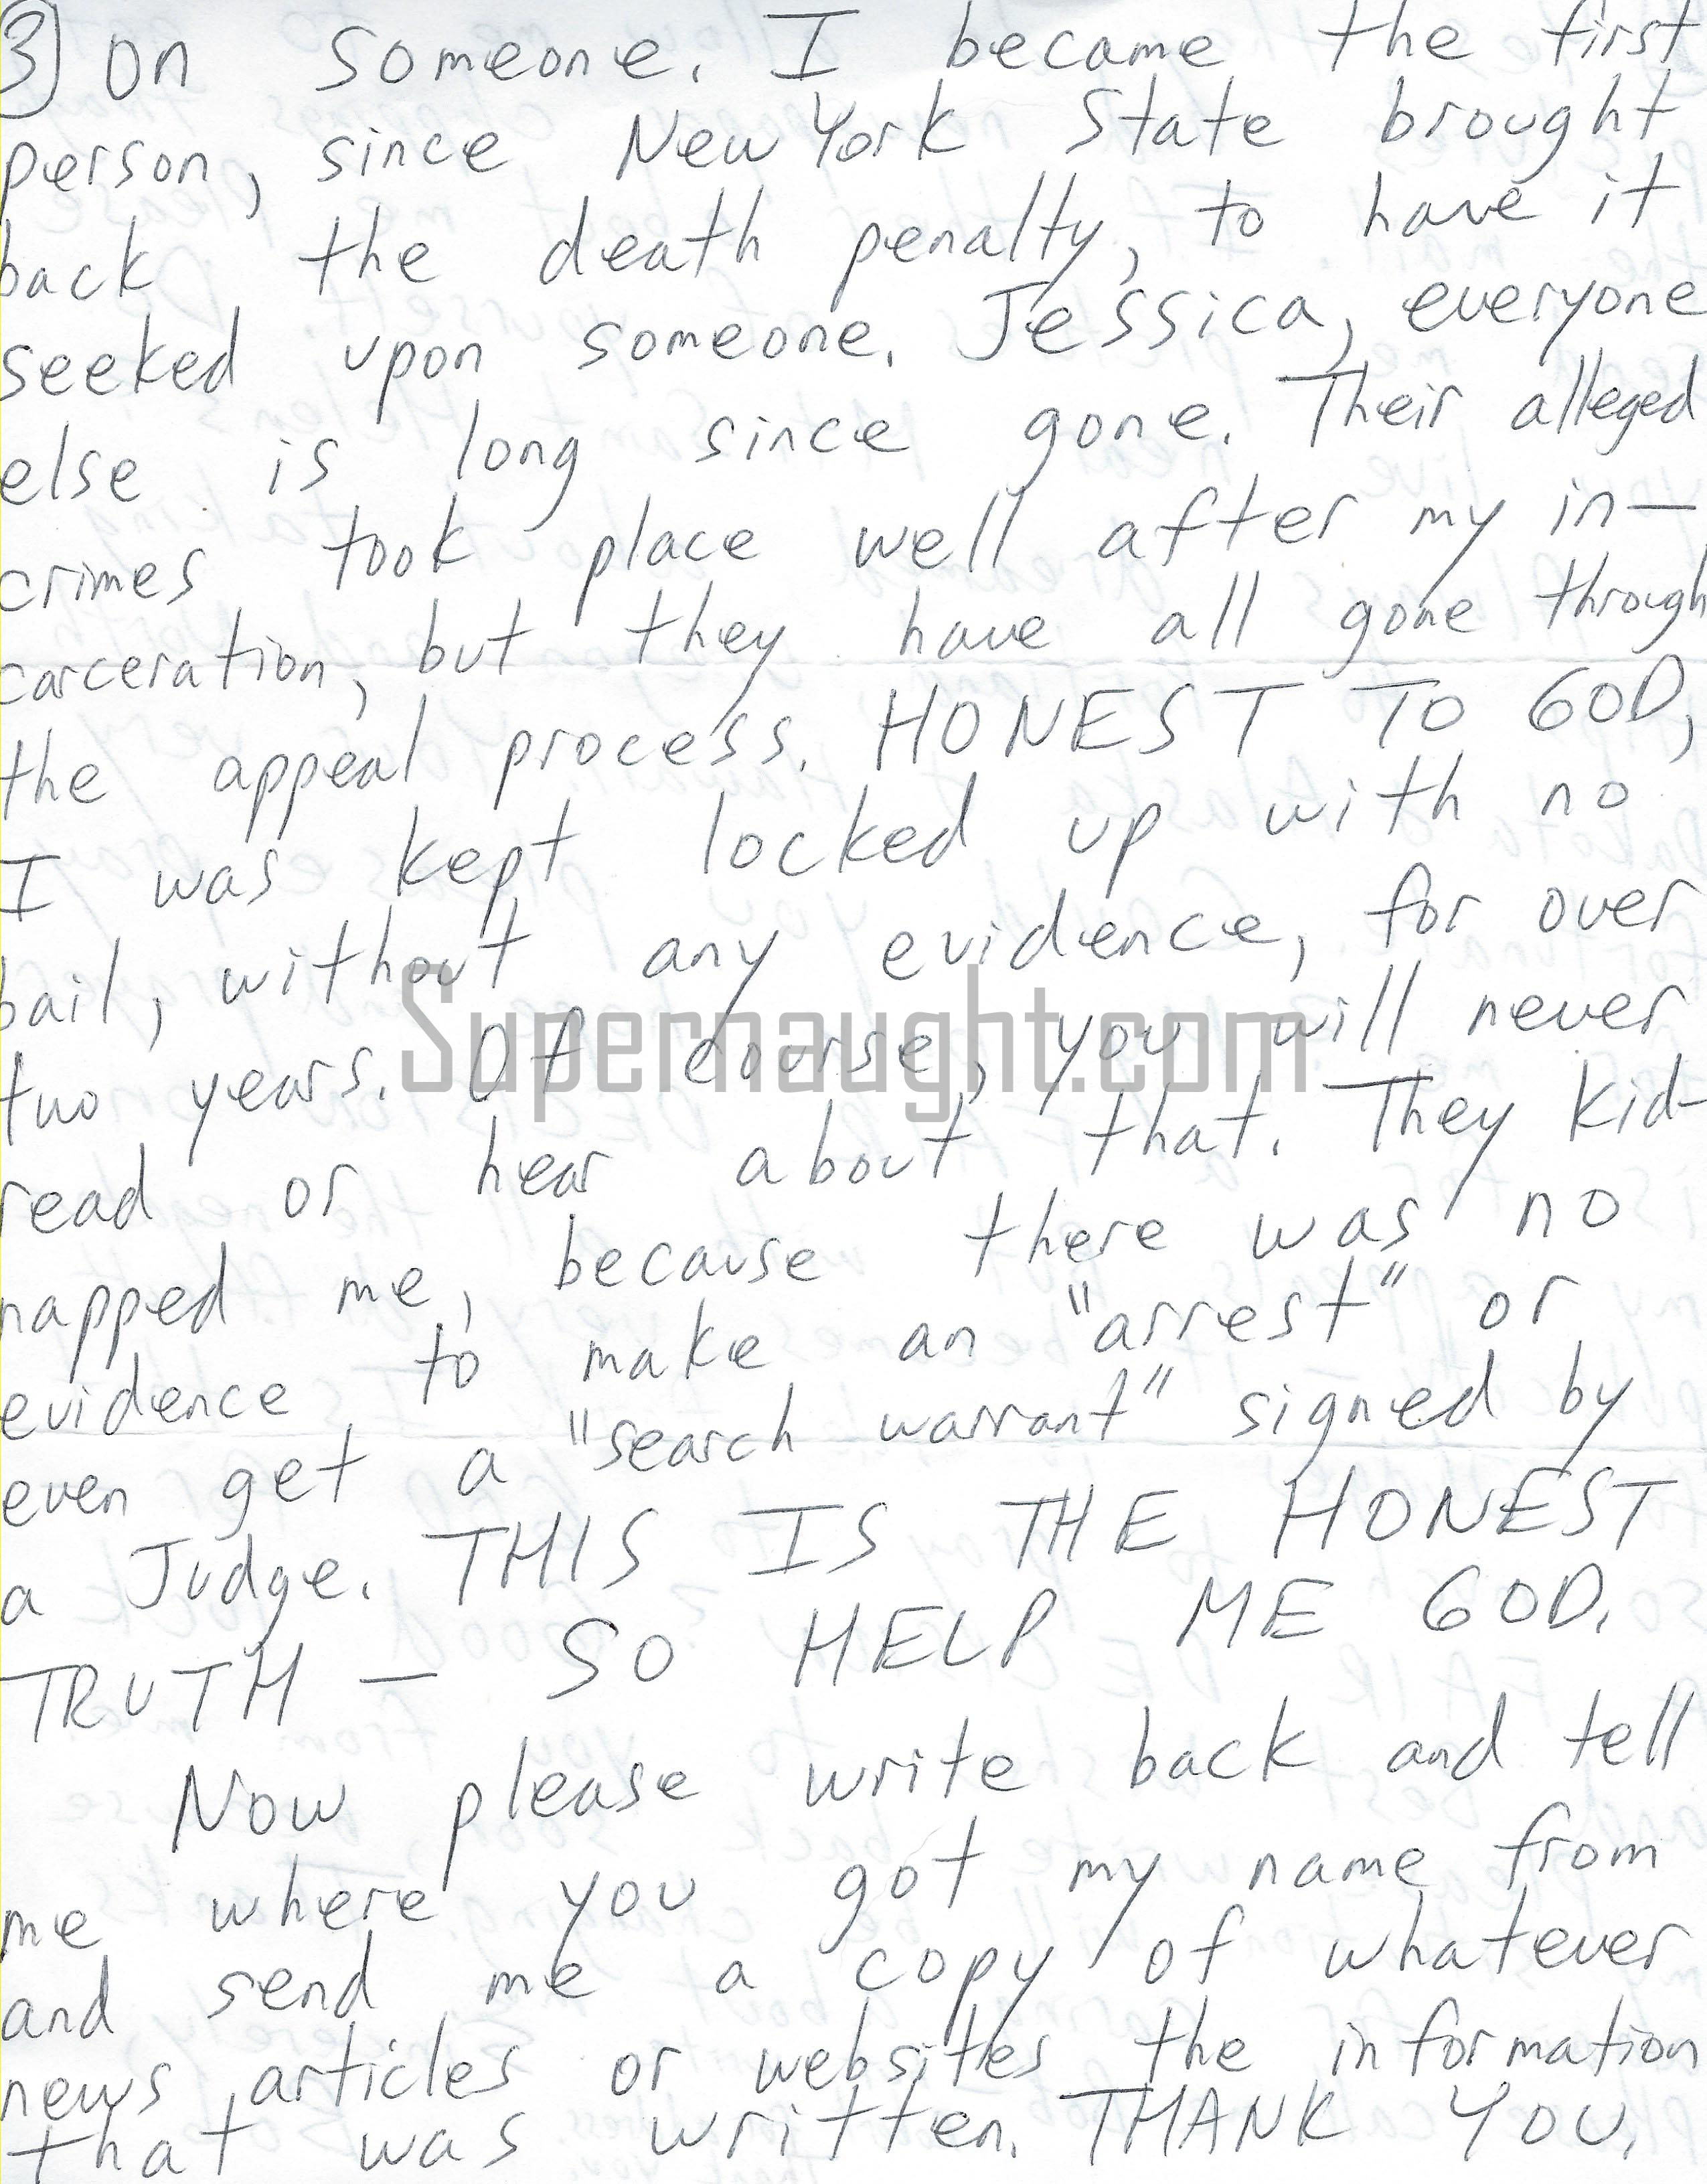 3) on someone. I became the first
person, since New York State brought
back the death penalty, to have it
seeked upon someone. Jessica, everyone
else is long since gone. Their alleged
crimes took place well after my in-
carceration, but they have all gone through
the appeal process. HONEST TO GOD,
I was kept locked up with no
bail, without any evidence, for over
two years. Of course, you will never
read or hear about that. They kid-
napped me, because there was no
evidence to make an "arrest" or
even get a "search warrant" signed by
a Judge. THIS IS THE HONEST
TRUTH — SO HELP ME GOD.
Now please write back and tell
me where you got my name from
and send me a copy of whatever
news articles or websites the information
that was written. THANK YOU.
Supernaught.com